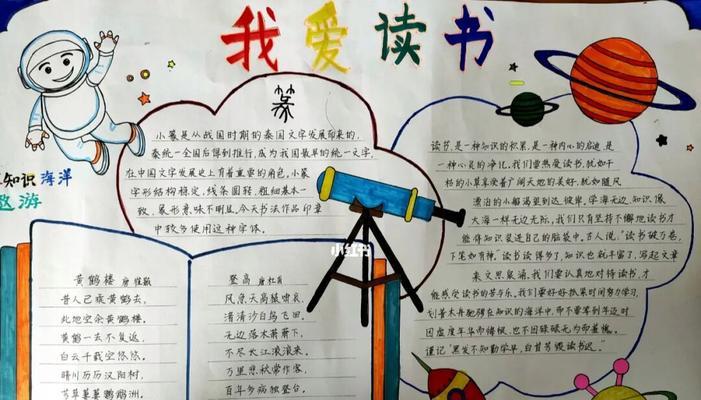 我爱读书
篆
小篆是从战国时期的秦国文字发展印来的,
秦统一全国后得到推行,成为我国最早的统一文字,
在中国文字发展史上有着重要的角色。小篆
字形结构稳定、线条圆转、粗细基本一
致、象形意味不明显。今天书法作品印章
中较多使用这种字体。
知识海洋
遨游
黄鹤楼 唐 崔颢
昔人已乘黄鹤去,
此地空余黄鹤楼。
黄鹤一去不复返,
白云千载空悠悠。
晴川历历汉阳树,
芳草萋萋鹦鹉洲。
登高 唐杜甫
风急天高猿啸哀,
渚清沙白鸟飞回。
无边落木萧萧下,
不尽长江滚滚来。
万里悲秋常作客,
百年多病独登台。
小红书
读书,是一种知识的积累,是一种内心的启迪,是
一种心灵的净化。我们要热爱读书,就如干
枯的小草享受着广阔天地的美好,就如随风
漂泊的小船渴望到达彼岸。学海无边,知识像
大海一样无边无际。我们只有坚持不懈地读书才
能将知识装进自己的脑袋中。古人说:"读书破万卷,
下笔如有神。"读书读得多了,知识也就丰富了,写起文章
来文思泉涌。我们要认真地对待读书,才
能感受读书的苦与乐。我们要好好抓紧时间努力学习,
划着木舟驰骋在知识的海洋中,而不要等到年迈时
因虚度年华而悔恨,也不因碌碌无为而羞愧。
谨记"黑发不知勤学早,白首方悔读书迟。"